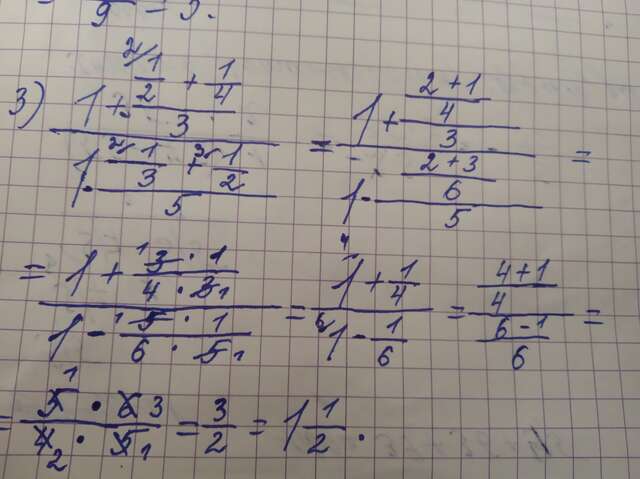 9 = 9.
3) (1 + (1/2 + 1/4)/3) / (1 - (1/3 + 1/2)/5) = (1 + ((2+1)/4)/3) / (1 - ((2+3)/6)/5) =
= (1 + (3 · 1)/(4 · 3)) / (1 - (5 · 1)/(6 · 5)) = (1 + 1/4) / (1 - 1/6) = ((4+1)/4) / ((6-1)/6) =
= (5 · 6)/(4 · 5) = 3/2 = 1 1/2.